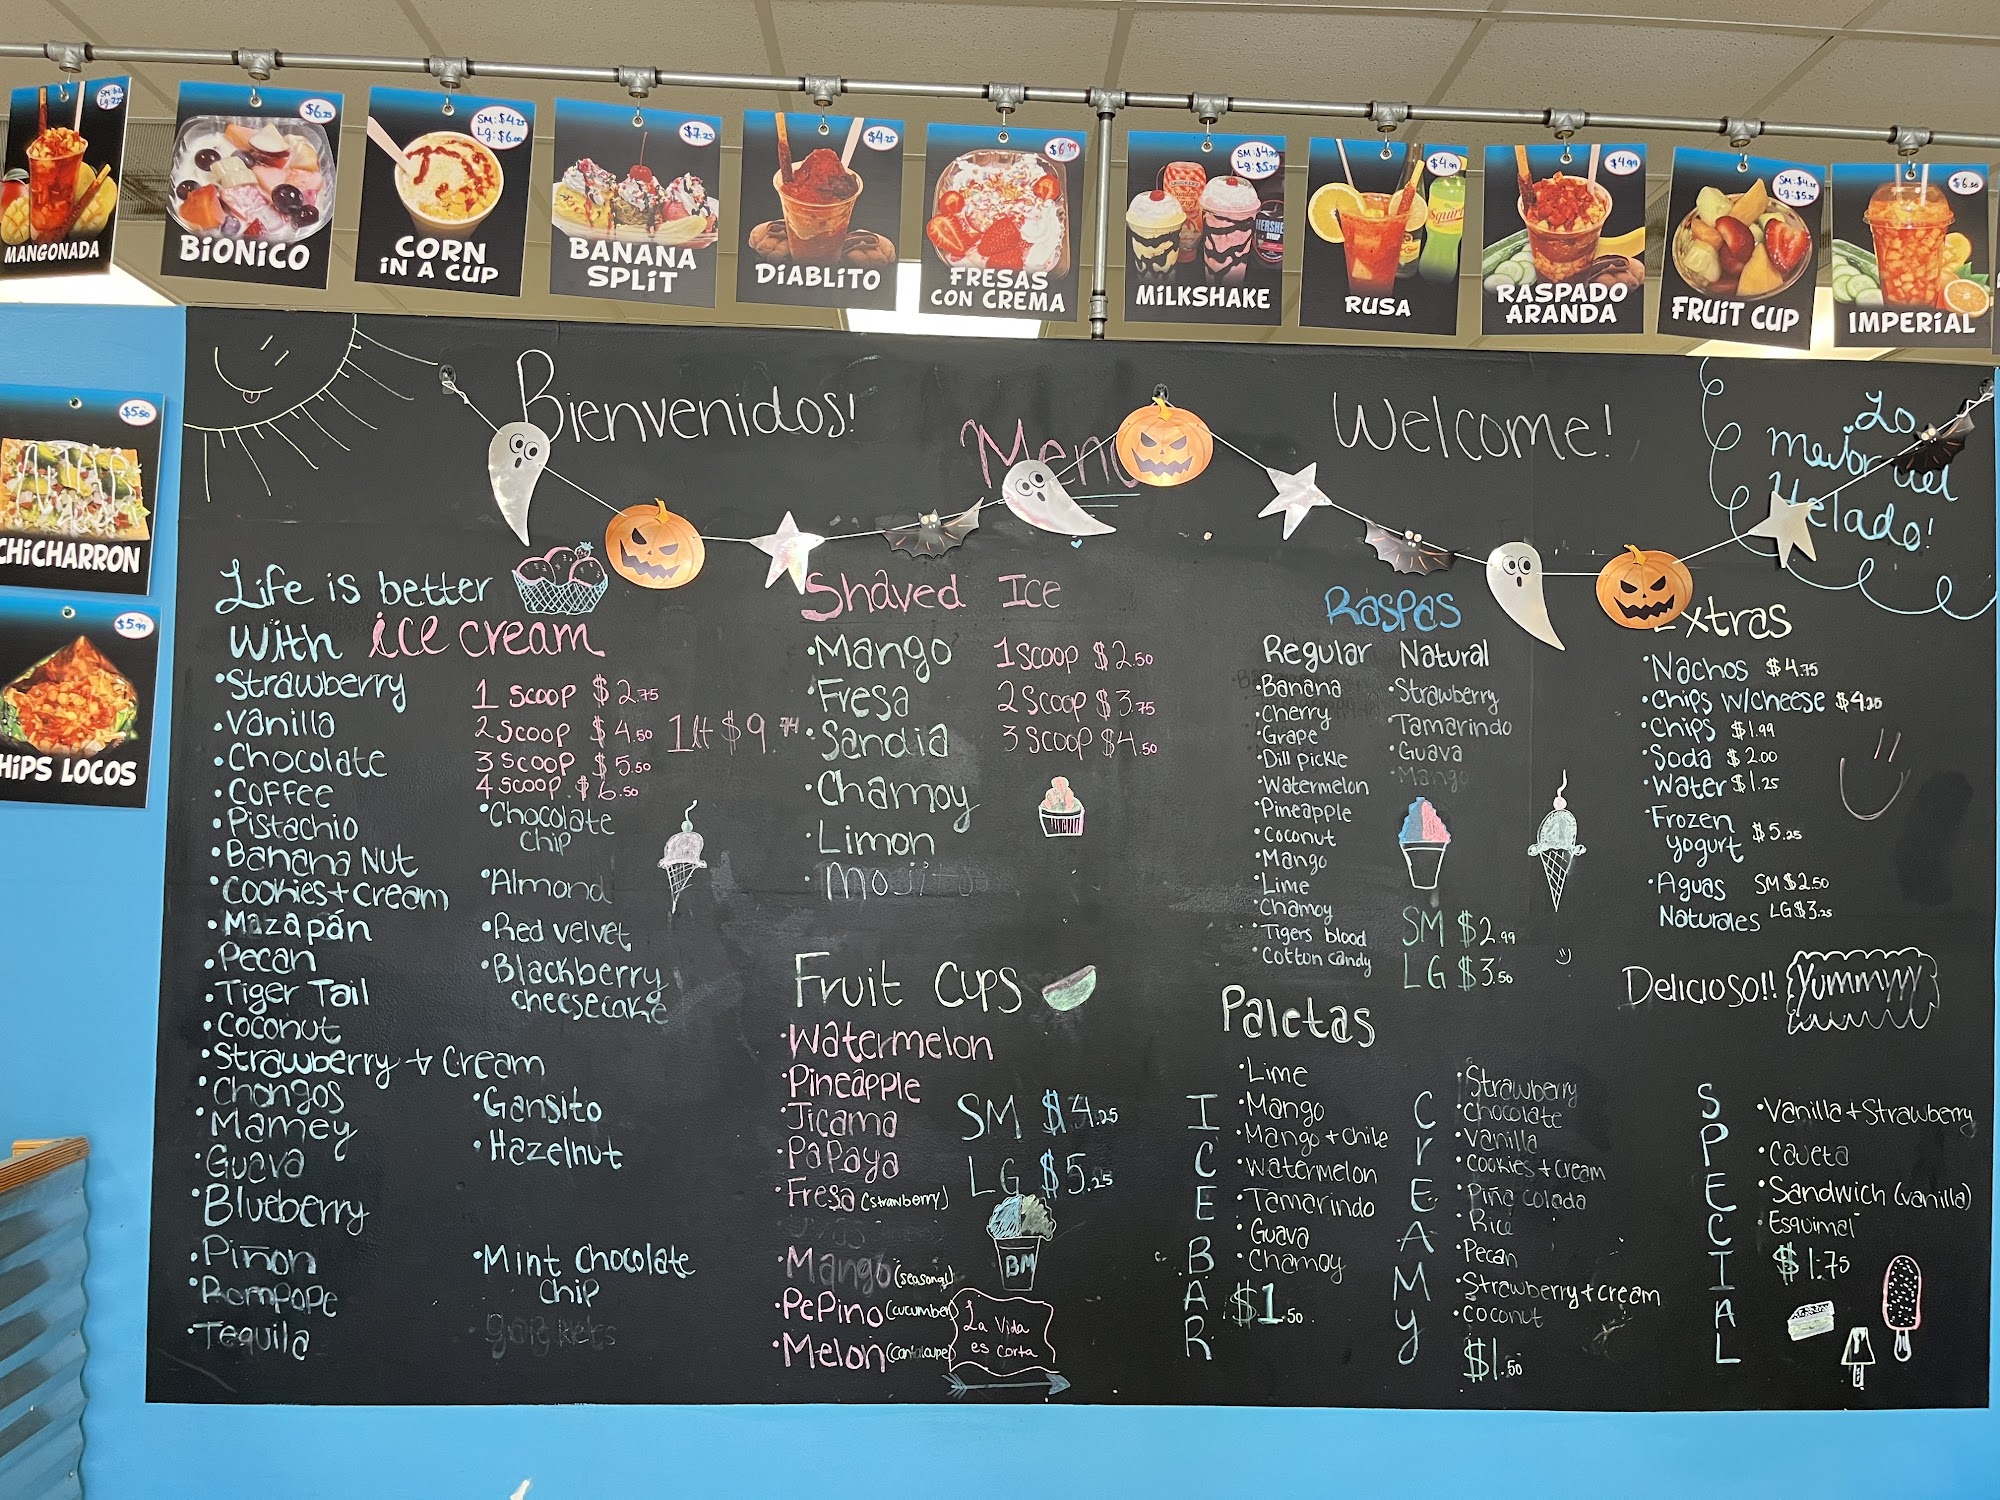 MANGONADA
$6.25
BiONiCO
SM: $4.25
Lg: $6.00
CORN
iN A CUP
$7.25
BANANA
SPLiT
$4.25
DiABLiTO
$6.99
FRESAS
CON CREMA
SM: $4.75
Lg: $5.25
MiLKSHAKE
$4.99
RUSA
$4.99
RASPADO
ARANDA
SM: $4.25
Lg: $5.25
FRUiT CUP
$6.50
IMPERiAL
$5.50
CHiCHARRON
$5.99
HiPS LOCOS
Bienvenidos!
Menu
Welcome!
Lo
mejor del
Helado!
Life is better
with ice cream
•Strawberry
•Vanilla
•Chocolate
•Coffee
•Pistachio
•Banana Nut
•Cookies+Cream
•Mazapán
•Pecan
•Tiger Tail
•Coconut
•Strawberry + Cream
•Chongos
•Mamey
•Guava
•Blueberry
•Piñon
•Rompope
•Tequila
1 scoop $2.75
2 scoop $4.50
3 scoop $5.50
4 scoop $6.50
1Lt $9.
•Chocolate
chip
•Almond
•Red velvet
•Blackberry
cheesecake
•Gansito
•Hazelnut
•Mint Chocolate
Chip
Shaved Ice
•Mango
•Fresa
•Sandia
•Chamoy
•Limon
•Mojito
1 Scoop $2.50
2 Scoop $3.75
3 Scoop $4.50
Fruit Cups
•Watermelon
•Pineapple
•Jicama
•Papaya
•Fresa (strawberry)
•Mango (seasonal)
•PePino (cucumber)
•Melon (cantaloupe)
SM $4.25
LG $5.25
BM
La Vida
es corta
Raspas
Regular
•Banana
•Cherry
•Grape
•Dill pickle
•Watermelon
•Pineapple
•Coconut
•Mango
•Lime
•Chamoy
•Tigers blood
•Cotton candy
Natural
•Strawberry
•Tamarindo
•Guava
•Mango
SM $2.99
LG $3.50
Extras
•Nachos $4.75
•Chips w/cheese $4.25
•Chips $1.99
•Soda $2.00
•Water $1.25
•Frozen
yogurt $5.25
•Aguas SM $2.50
Naturales LG $3.25
Delicioso!! Yummyyy
Paletas
ICE BAR
•Lime
•Mango
•Mango + Chile
•Watermelon
•Tamarindo
•Guava
•Chamoy
$1.50
CrEAMy
•Strawberry
•Chocolate
•Vanilla
•Cookies + Cream
•Piña colada
•Rice
•Pecan
•Strawberry + cream
•Coconut
$1.50
SPECIAL
•Vanilla + Strawberry
•Caveta
•Sandwich (vanilla)
•Esquimal
$1.75